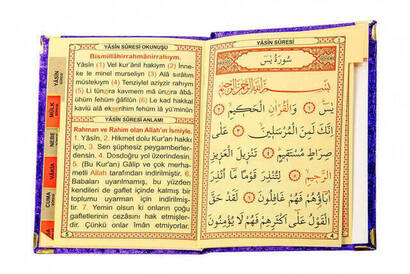 YÂSİN SÛRESİ OKUNUŞU
Bismillâhirrahmânirrahîym.
Yâsîn (1) Vel kur'ânil hakiym (2) İnne-
ke le minel murseliyn (3) Alâ sırâtım
müstekıym (4) Tenziylel aziyzir rahıym
(5) Li tünzira kavmem mâ ünzira âbâ-
ühüm fehüm ğâfilûn (6) Le kad hakkal
kavlü alâ ekserihim fehüm lâ yü'minûn
YÂSİN SÛRESİ ANLAMI
Rahman ve Rahim olan Allah'ın İsmiyle.
1. Yâsîn, 2. Hikmet dolu Kur'an hakkı
için, 3. Sen şüphesiz peygamberler-
densin. 4. Dosdoğru yol üzerindesin.
5. (Bu Kur'an) Gâlip ve çok merha-
metli Allah tarafından indirilmiştir. 6.
Babaları uyarılmamış, bu yüzden
kendileri de gaflet içinde kalmış bir
toplumu uyarman için indirilmiş-
tir. 7. Yemin olsun ki onların çoğu
gafletlerinin cezasını hak etmişler-
dir. Çünkü onlar îman etmiyorlar.
YÂSİN
MÜLK
NEBE
VÂKIA
CUMA
YÂSİN SÛRESİ
سُورَةُ يٰسٓ
بِسْمِ اللّٰهِ الرَّحْمٰنِ الرَّحِيمِ
يٰسٓ ﴿١﴾ وَالْقُرْاٰنِ الْحَكِيمِ ﴿٢﴾
اِنَّكَ لَمِنَ الْمُرْسَلِينَ ﴿٣﴾ عَلٰى
صِرَاطٍ مُسْتَقِيمٍ ﴿٤﴾ تَنْزِيلَ الْعَزِيزِ
الرَّحِيمِ ﴿٥﴾ لِتُنْذِرَ قَوْمًا مَا اُنْذِرَ
اٰبَاؤُهُمْ فَهُمْ غَافِلُونَ ﴿٦﴾ لَقَدْ حَقَّ
الْقَوْلُ عَلٰى اَكْثَرِهِمْ فَهُمْ لَا يُؤْمِنُونَ